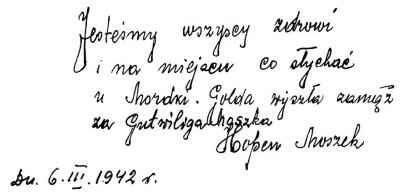 Jesteśmy wszyscy zdrowi
i na miejscu co słychać
u Mordki. Golda wyszła zamąż
za Gutwiliga Haszka
Hopen Moszek
Dn. 6.III.1942 r.